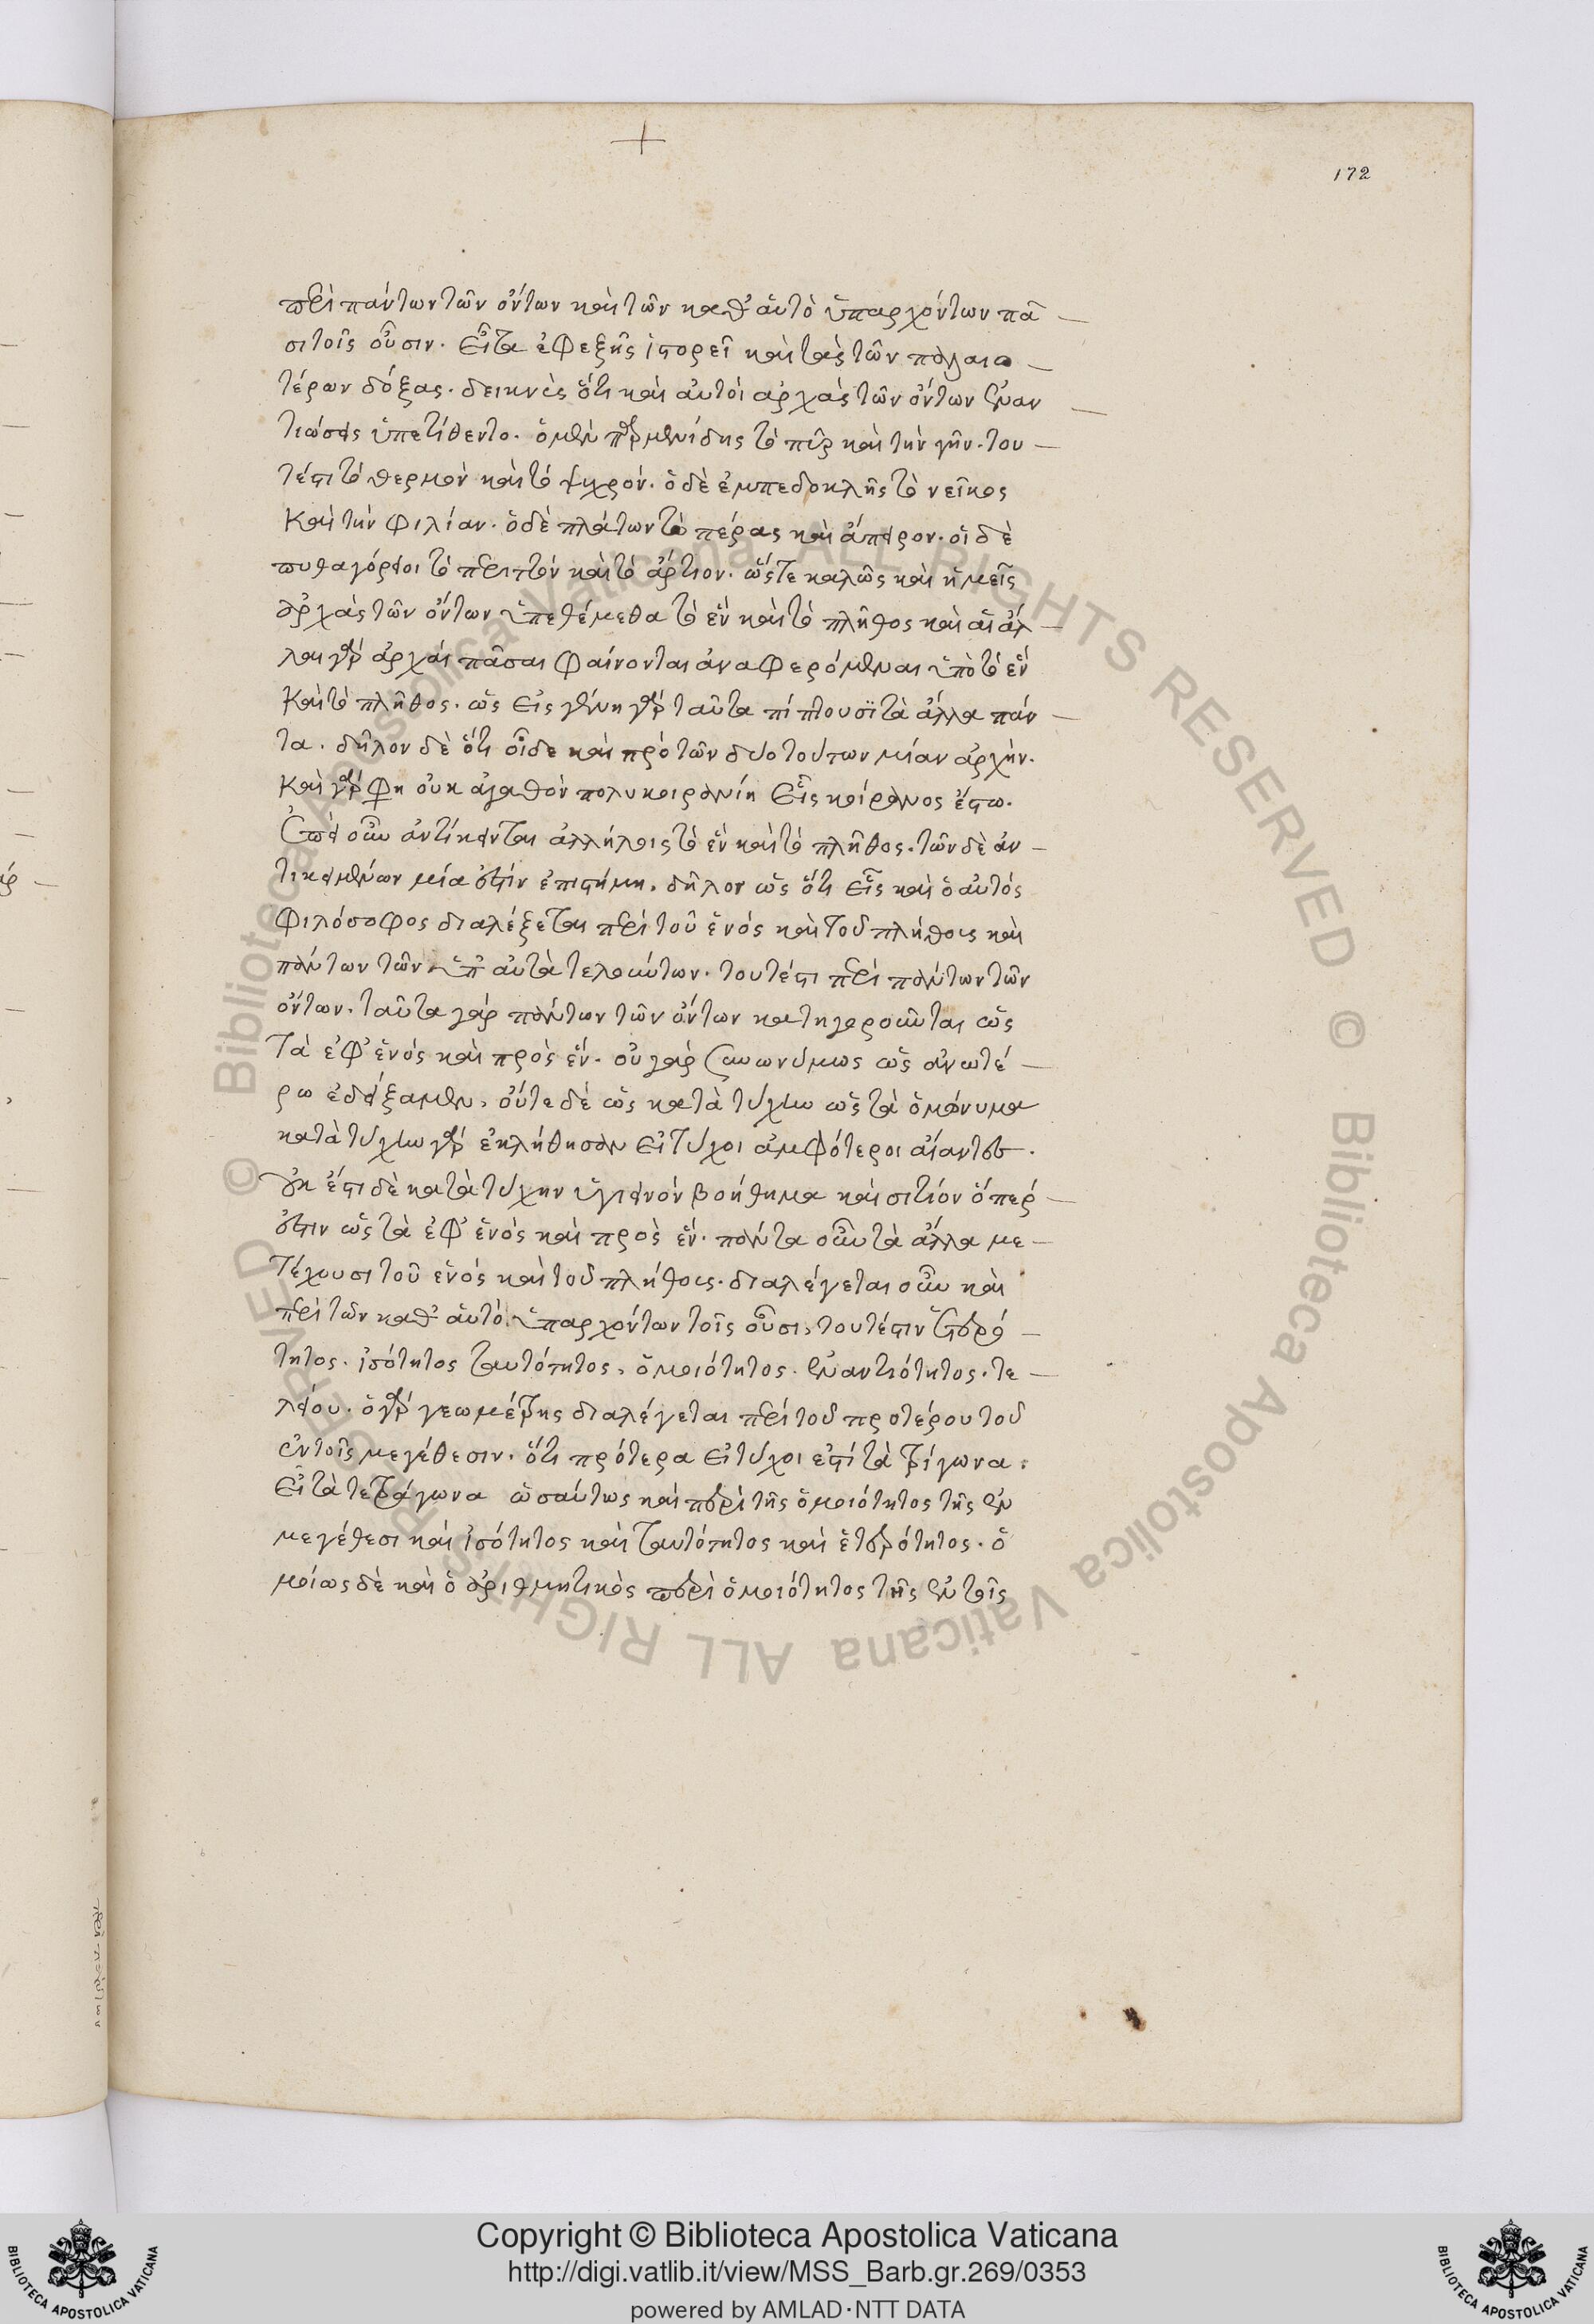 172
περὶ πάντων τῶν ὄντων καὶ τῶν καθ' αὑτὸ ὑπαρχόντων πᾶ
σι τοῖς οὖσιν. εἶτα ἐφεξῆς ἱστορεῖ καὶ τὰς τῶν παλαιο
τέρων δόξας. δεικνὺς ὅτι καὶ αὐτοὶ ἀρχὰς τῶν ὄντων ἐναν
τιώσεις ὑπετίθεντο. ὁ μὲν παρμενίδης τὸ πῦρ καὶ τὴν γῆν. του
τέστι τὸ θερμὸν καὶ τὸ ψυχρόν. ὁ δὲ ἐμπεδοκλῆς τὸ νεῖκος
καὶ τὴν φιλίαν. ὁ δὲ πλάτων τὸ πέρας καὶ ἄπειρον. οἱ δὲ
πυθαγόρειοι τὸ περιττὸν καὶ τὸ ἄρτιον. ὥστε καλῶς καὶ ἡμεῖς
ἀρχὰς τῶν ὄντων ὑπεθέμεθα τὸ ἓν καὶ τὸ πλῆθος καὶ αἱ ἄλ
λαι γὰρ ἀρχαὶ πᾶσαι φαίνονται ἀναφερόμεναι ὑπὸ τὸ ἓν
καὶ τὸ πλῆθος. ὡς εἰς γένη γὰρ ταῦτα πίπτουσϊ τὰ ἄλλα πάν
τα. δῆλον δὲ ὅτι οἶδε καὶ πρὸ τῶν δύο τούτων μίαν ἀρχήν.
καὶ γάρ φη οὐκ ἀγαθὸν πολυκοιρανίη εἷς κοίρανος ἔστω.
ἐπεὶ οὖν ἀντίκεινται ἀλλήλοις τὸ ἓν καὶ τὸ πλῆθος. τῶν δὲ ἀν
τικειμένων μία ἐστὶν ἐπιστήμη. δῆλον ὡς ὅτι εἷς καὶ ὁ αὐτὸς
φιλόσοφος διαλέξεται περὶ τοῦ ἑνὸς καὶ τοῦ πλήθους καὶ
πάντων τῶν ὑπ' αὐτὰ τελούντων. τουτέστι περὶ πάντων τῶν
ὄντων. ταῦτα γὰρ πάντων τῶν ὄντων κατηγοροῦνται ὡς
τὰ ἐφ' ἑνὸς καὶ πρὸς ἕν. οὐ γὰρ συνωνύμως ὡς ἀνωτέ
ρω ἐδείξαμεν, οὔτε δὲ ὡς κατὰ τύχην ὡς τὰ ὁμώνυμα
κατὰ τύχην γὰρ ἐκλήθησαν εἰ τύχοι ἀμφότεροι αἴαντες.
οὐκ ἔστι δὲ κατὰ τύχην ὑγιεινὸν βοήθημα καὶ σιτίον ὅπερ
ἐστὶν ὡς τὰ ἐφ' ἑνὸς καὶ πρὸς ἕν. πάντα οὖν τὰ ἄλλα με
τέχουσι τοῦ ἑνὸς καὶ τοῦ πλήθους. διαλέγεται οὖν καὶ
περὶ τῶν καθ' αὑτὸ ὑπαρχόντων τοῖς οὖσι, τουτέστιν ἑτερό
τητος. ἰσότητος ταυτότητος, ὁμοιότητος. ἐναντιότητος. τε
λείου. ὁ γὰρ γεωμέτρης διαλέγεται περὶ τοῦ προτέρου τοῦ
ἐν τοῖς μεγέθεσιν. ὅτι πρότερα εἰ τύχοι ἐστὶ τὰ τρίγωνα.
εἶτα τετράγωνα ὡσαύτως καὶ περὶ τῆς ὁμοιότητος τῆς ἐν
μεγέθεσι καὶ ἰσότητος καὶ ταυτότητος καὶ ἑτερότητος. ὁ
μοίως δὲ καὶ ὁ ἀριθμητικὸς περὶ ὁμοιότητος τῆς ἐν τοῖς
© Biblioteca Apostolica Vaticana ALL RIGHTS RESERVED © Biblioteca Apostolica Vaticana ALL RIGHTS RESERVED
Copyright © Biblioteca Apostolica Vaticana
http://digi.vatlib.it/view/MSS_Barb.gr.269/0353
powered by AMLAD·NTT DATA
BIBLIOTECA APOSTOLICA VATICANA
BIBLIOTECA APOSTOLICA VATICANA